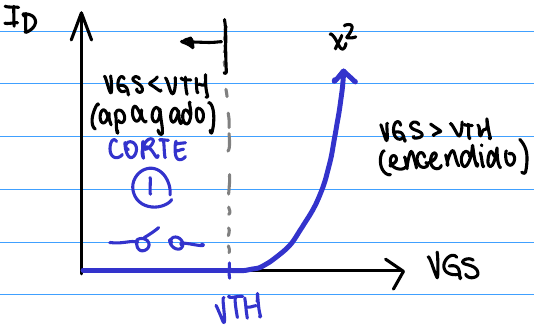 ID
x²
VGS<VTH
(apagado)
CORTE
1
VGS>VTH
(encendido)
VGS
VTH